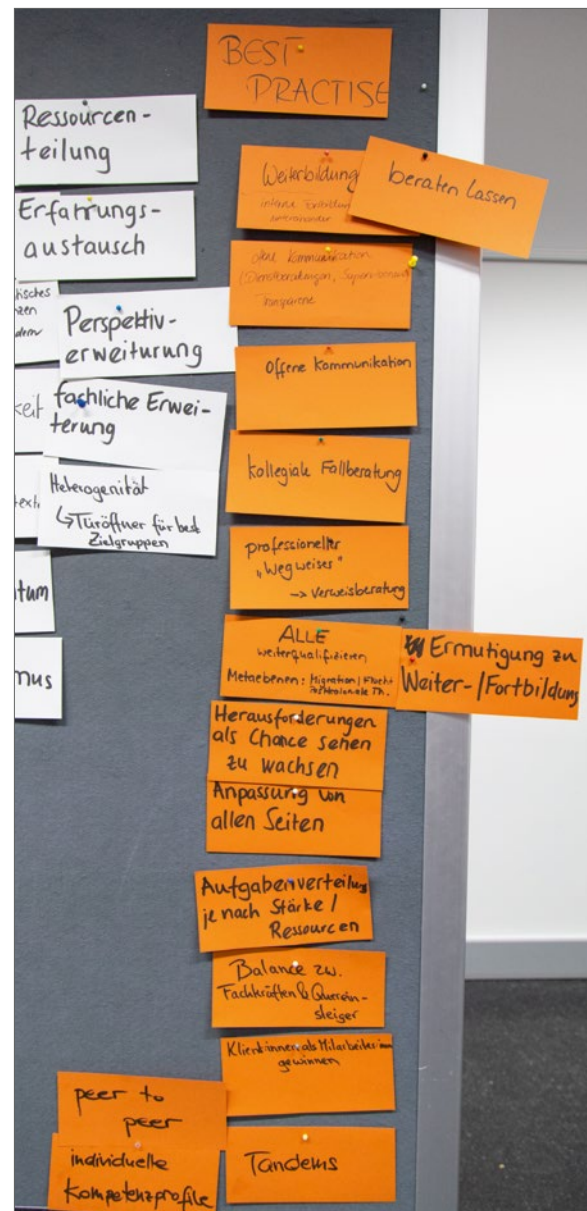 BEST
PRACTISE
Ressourcen-
teilung
Erfahrungs-
austausch
Perspektiv-
erweiturung
keit
fachliche Erwei-
terung
Heterogenität
↳ Türöffner für best.
Zielgruppen
tum
mus
Weiterbildung
interne Fortbildung
beraten lassen
Kommunikation
(Dienstberatungen, Supervisionen)
Transparenz
Offene Kommunikation
kollegiale Fallberatung
professioneller
„Wegweiser"
→ Verweisberatung
ALLE
weiterqualifizieren
Metaebenen: Migration/Flucht
Ermutigung zu
Weiter-/Fortbildung
Herausforderungen
als Chance sehen
zu wachsen
Anpassung von
allen Seiten
Aufgabenverteilung
je nach Stärke/
Ressourcen
Balance zw.
Fachkräften & Querein-
steiger
Klient:innen als Mitarbeiter:innen
gewinnen
peer to
peer
individuelle
Kompetenzprofile
Tandems